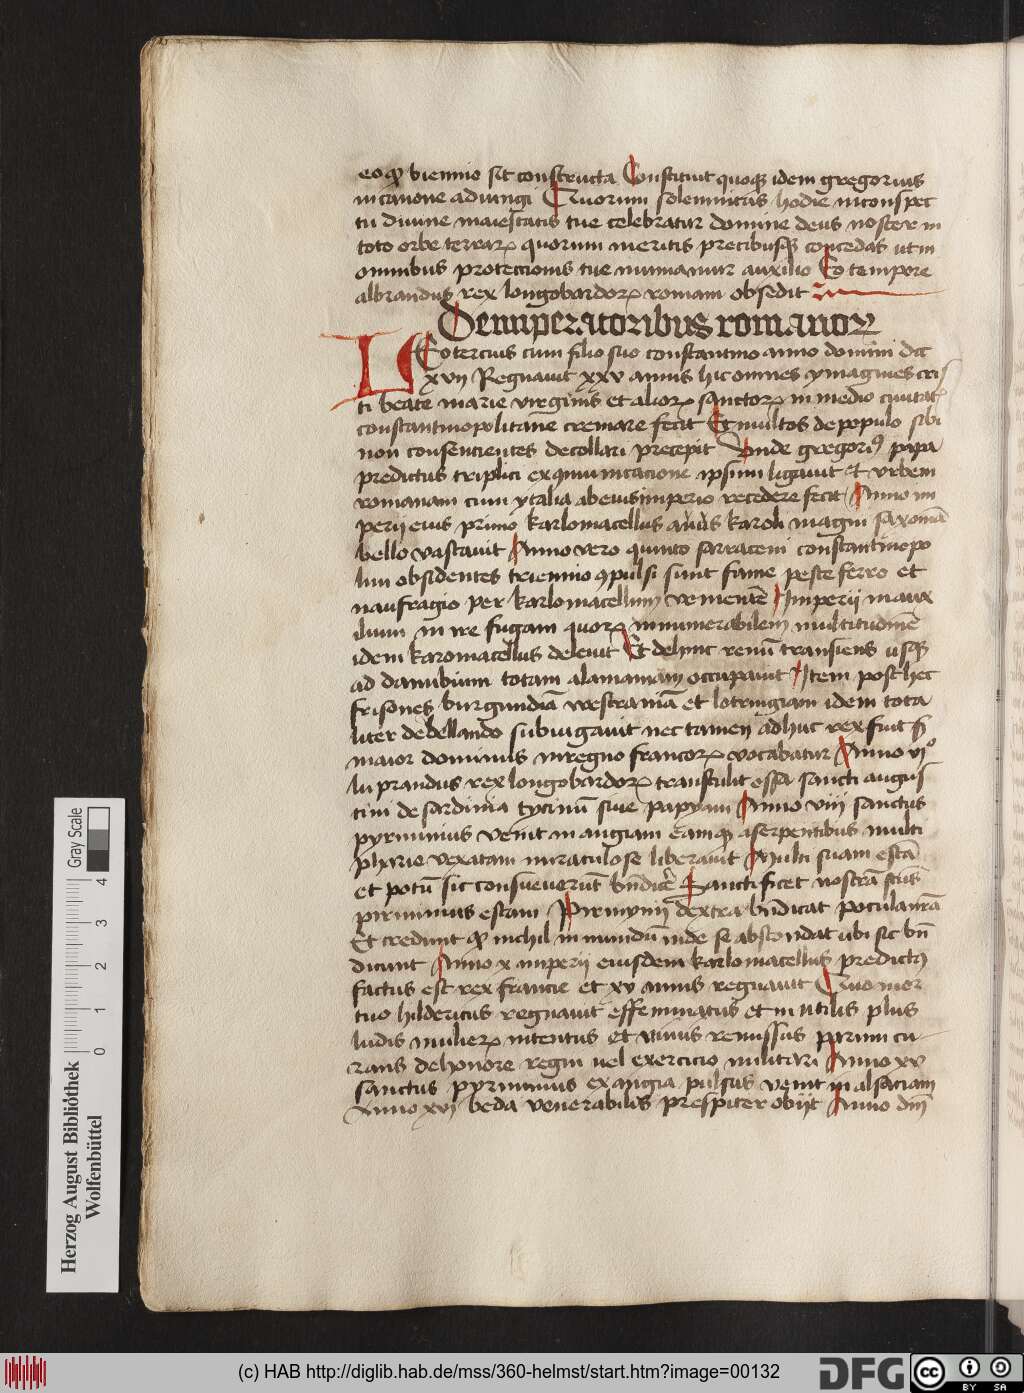 eoq biennio sit constructa Constituit quoq idem gregorius
in canone adiungi Quorum solemnitas hodie in conspec
tu divine maiestatis tue celebratur domine deus noster in
toto orbe terrar quorum meritis precibusq concedas ut in
omnibus protectionis tue muniamur auxilio Eo tempore
albrandus rex longobardor romam obsedit
De imperatoribus romanor
LEo tercius cum filio suo constantino anno domini dcc
xvij Regnavit xxv annis hic omnes ymagines cris
ti beate marie virginis et alior sanctor in medio civitat
constantinopolitane cremare fecit Et multos de populo sibi
non consencientes decollari precepit Unde gregori9 papa
predictus triplici excomunicacione ipsum ligavit et urbem
romanam cum ytalia ab eius imperio recedere fecit Anno im
perij eius primo karlomacellus avus karoli magni saxoniā
bello vastavit Anno vero quinto sarraceni constantinopo
lim obsidentes triennio qpulsi sunt fame peste ferro et
naufragio per karlomacellum vementē Imperij in aux
ilium in ire fugam quor innumerabilem multitudinē
idem karomacellus delevit Et dehinc renū transiens usq
ad danubium totam alamaniam occupavit Item post hec
frisones burgundiā westraniā et lotringiam idem tota
liter debellando subiugavit nec tamen adhuc rex fuit s
maior dominus in regno francor vocabatur Anno vj°
luprandus rex longobardor transtulit ossa sancti augus
tini de sardinia tycinū sive papyam Anno viij sanctus
pyrminius venit in augiam Eamq a serpentibus multi
pharie vexatam miraculose liberavit Multi suam escā
et potū sic consueverūt bndicē Sanctificet nostrā scūs
pirminius escam Pirmynij dextra bndicat pocula nrā
Et credunt q nichil in mundū inde se abscondat ubi sic bn
dicunt Anno x imperij eiusdem karlomacellus predict9
factus est rex francie et xv annis regnavit Quo mor
tuo hildericus regnavit effeminatus et inutilis plus
ludis mulier intentus et vinis remissus parum cu
rans de honore regni vel exercicio militari Anno xv
sanctus pyrminius ex augia pulsus venit in alsaciam
Anno xvj beda venerabilis prespiter obijt Anno dm
Herzog August Bibliothek
Wolfenbüttel
0 1 2 3 4
Gray Scale
(c) HAB http://diglib.hab.de/mss/360-helmst/start.htm?image=00132
DFG
cc
BY SA